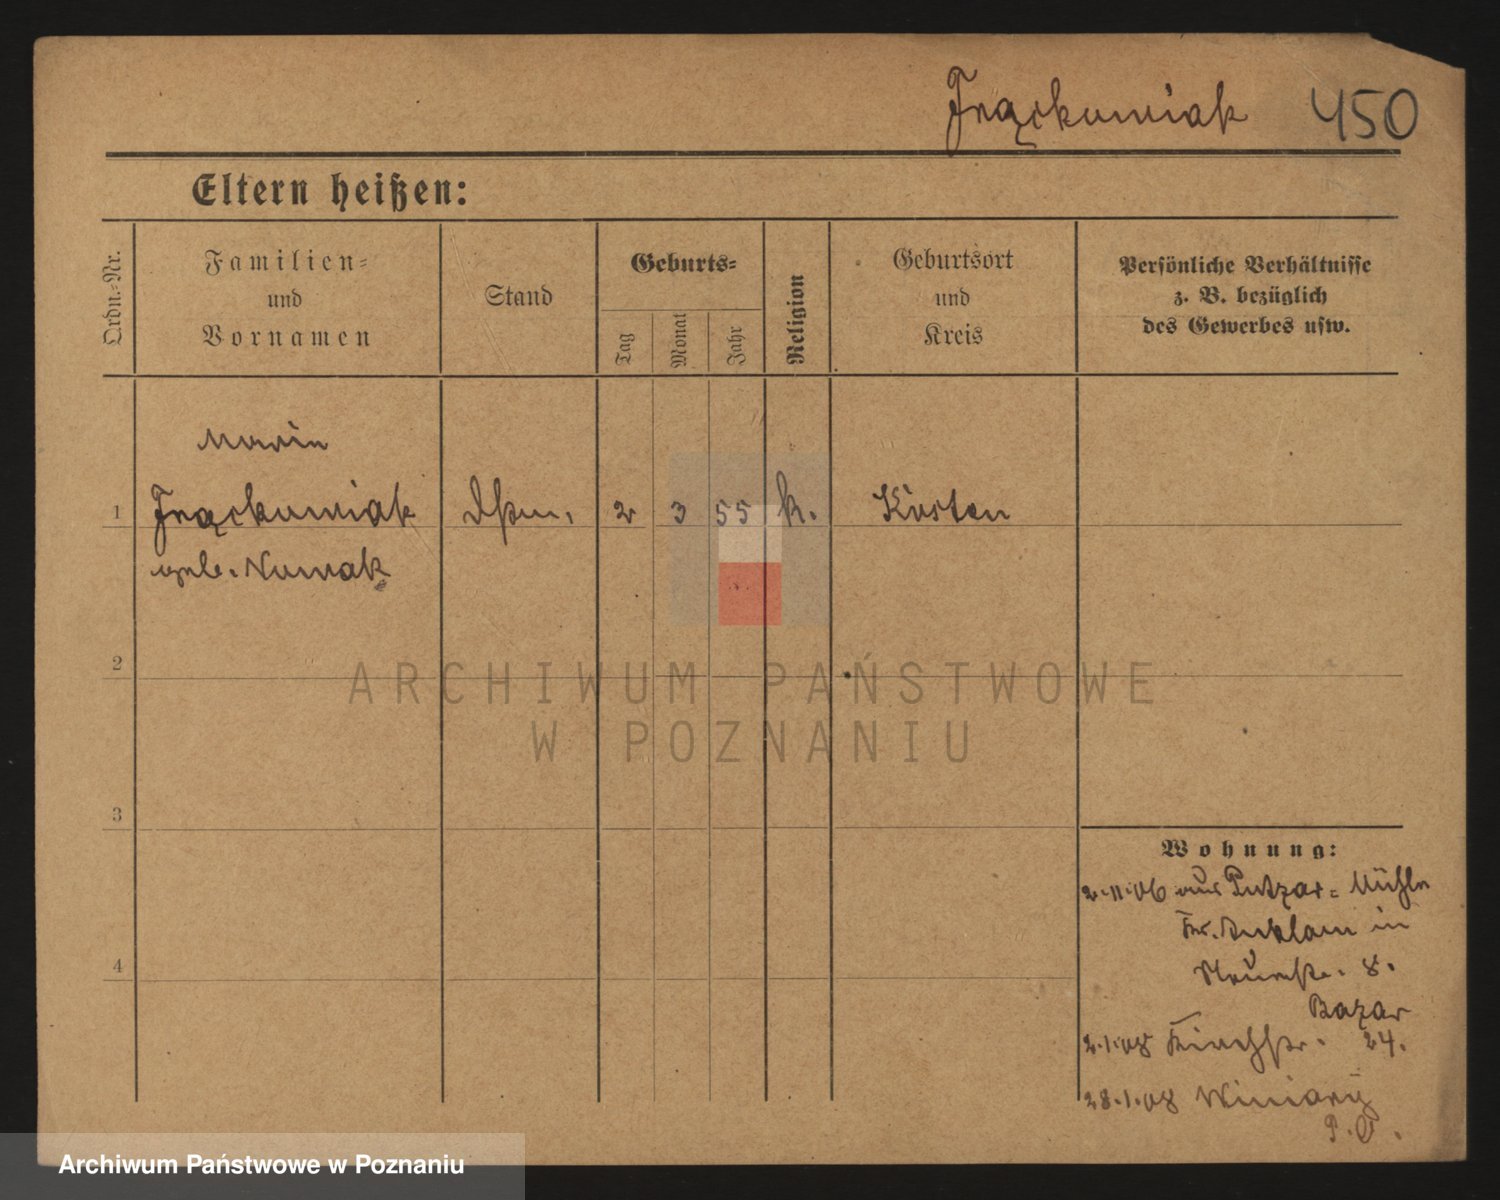 Frąckowiak 450
Eltern heißen:
Ordn.-Nr.
Familien-
und
Vornamen
Stand
Geburts-
Tag
Monat
Jahr
Religion
Geburtsort
und
Kreis
Persönliche Verhältnisse
z. B. bezüglich
des Gewerbes usw.
Marie
1 Frąckowiak 2 3 55 k. Kosten
geb. Nowak
2
3
4
Wohnung:
2.11.06 aus Putzar-Mühle
Kr. Anklam in
8.
Bazar
2.1.08 Kirchstr. 24.
28.1.08 Winiary
P. O.
ARCHIWUM PAŃSTWOWE
W POZNANIU
Archiwum Państwowe w Poznaniu